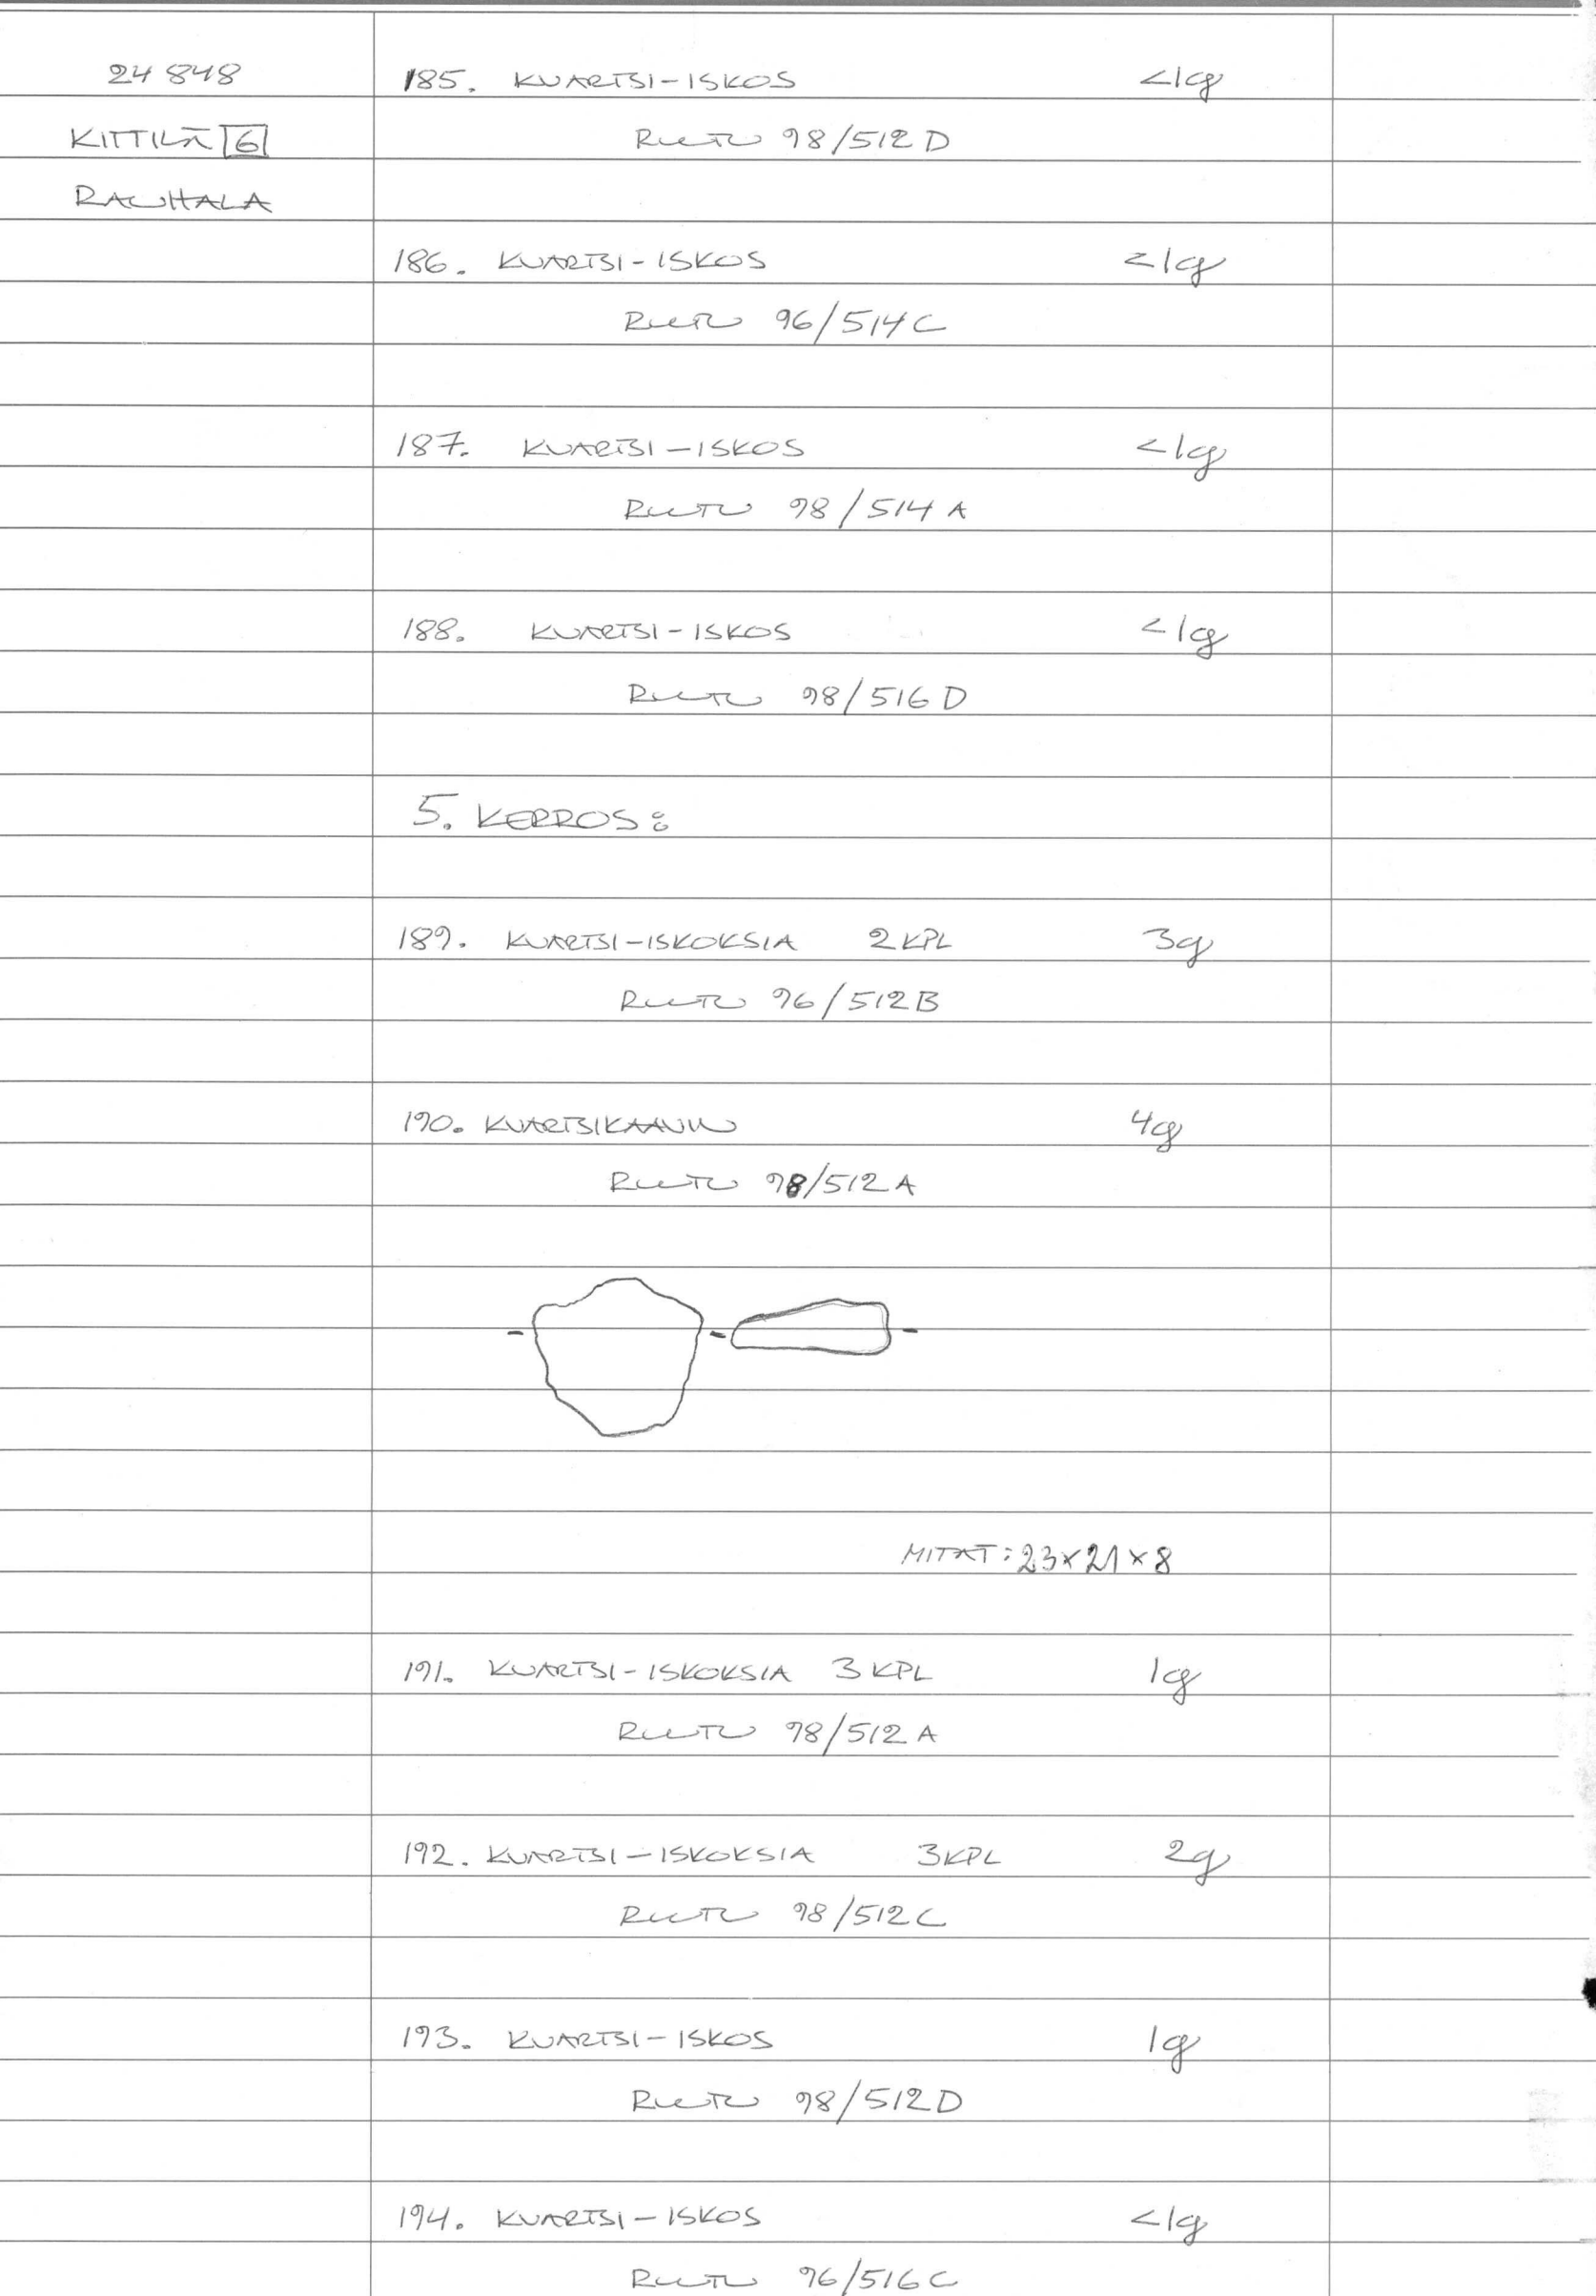 24 848 185. KVARTSI-ISKOS <1g
KITTILÄ 6 RUUTU 98/512 D
RAUHALA
186. KVARTSI-ISKOS <1g
RUUTU 96/514 C
187. KVARTSI-ISKOS <1g
RUUTU 98/514 A
188. KVARTSI-ISKOS <1g
RUUTU 98/516 D
5. KERROS:
189. KVARTSI-ISKOKSIA 2 KPL 3g
RUUTU 96/512 B
190. KVARTSIKAAVIN 4g
RUUTU 98/512 A
MITAT: 23x21x8
191. KVARTSI-ISKOKSIA 3 KPL 1g
RUUTU 98/512 A
192. KVARTSI-ISKOKSIA 3 KPL 2g
RUUTU 98/512 C
193. KVARTSI-ISKOS 1g
RUUTU 98/512 D
194. KVARTSI-ISKOS <1g
RUUTU 96/516 C